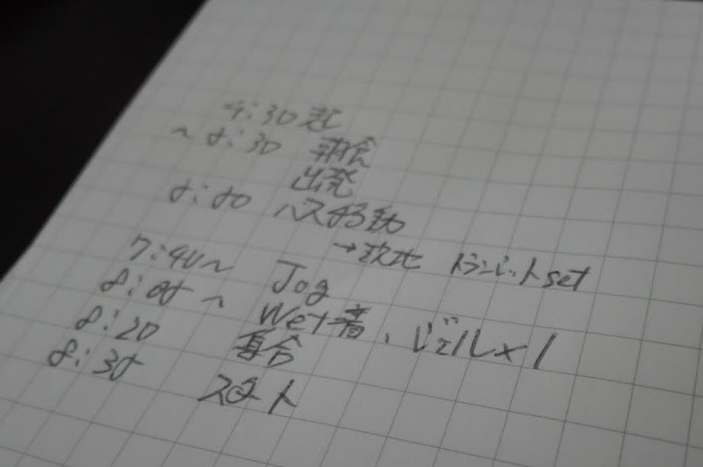 4:30 起
~5:30 朝食
出発
5:50 バス移動
→現地 トランジットset
7:40~ Jog
8:05~ Wet着、ジェル×1
8:20 集合
8:35 スタート